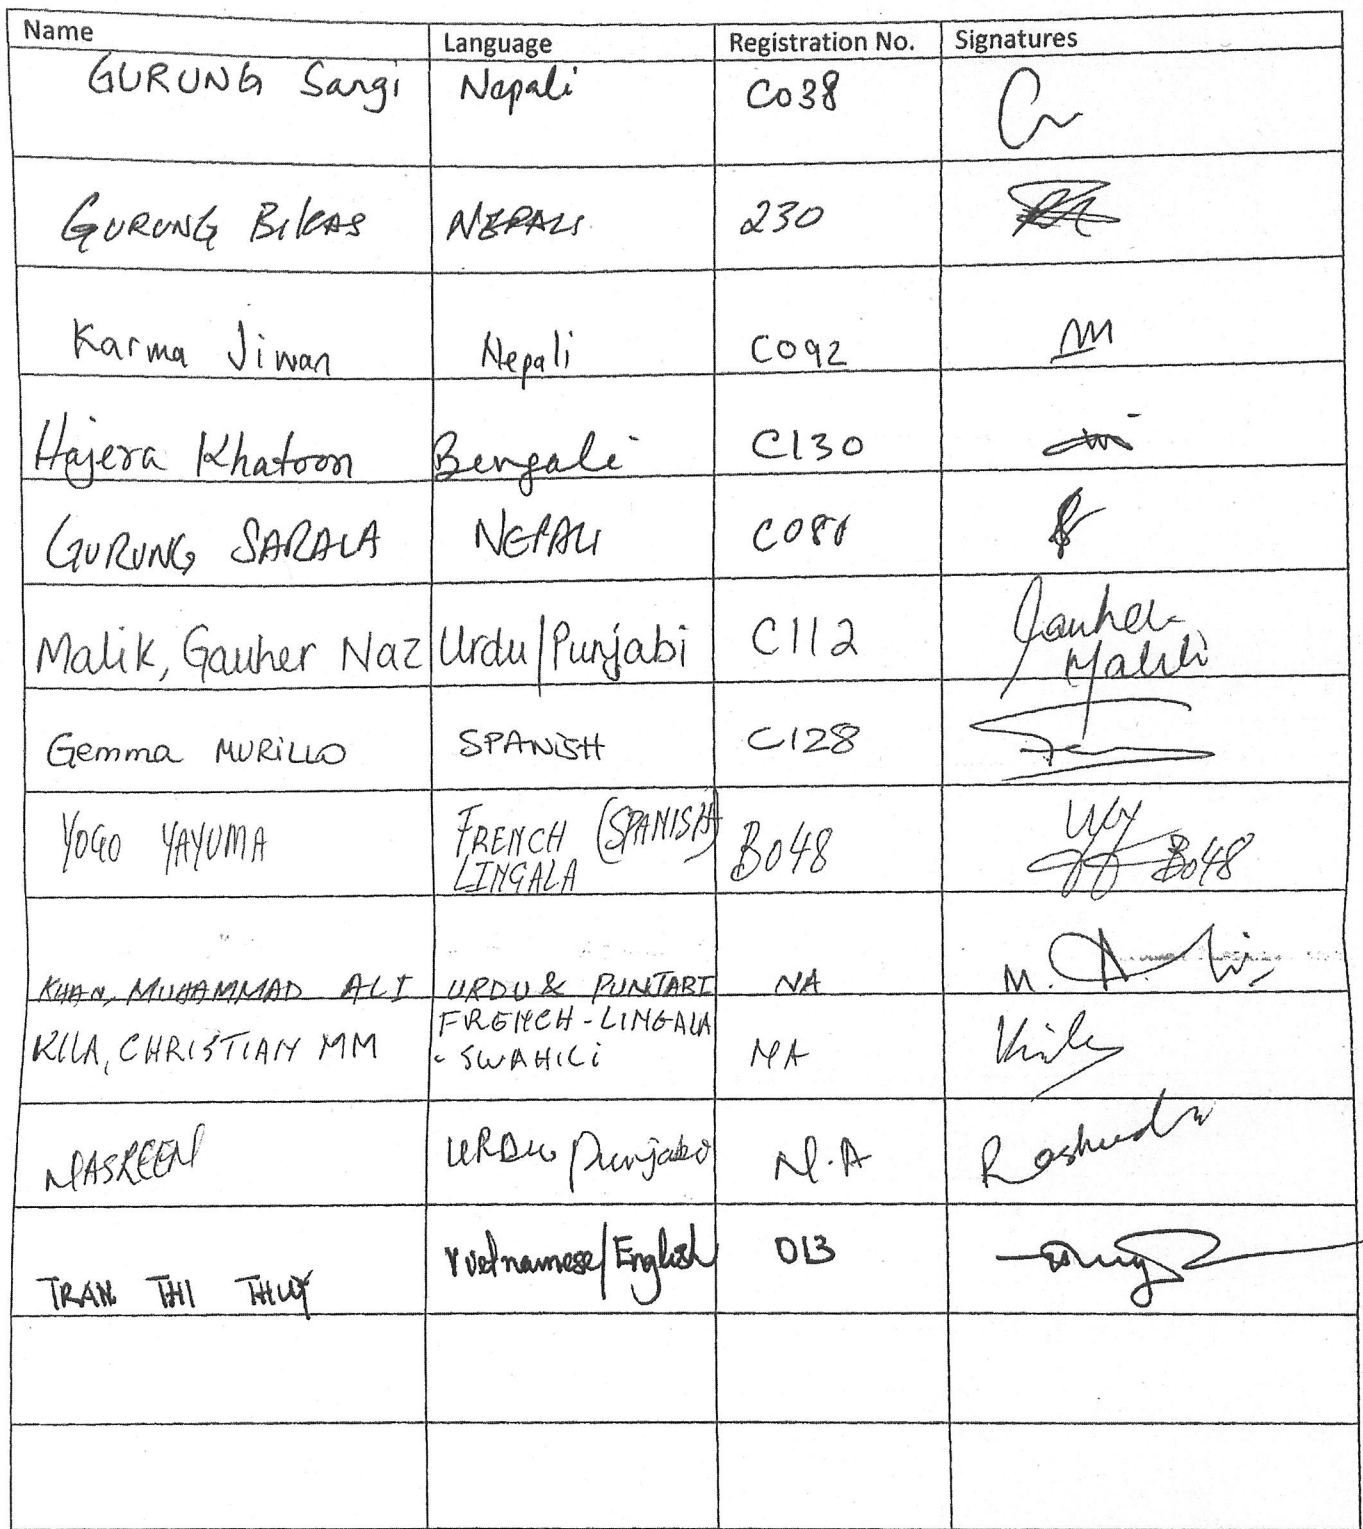 Name Language Registration No. Signatures
GURUNG Sangi Nepali C038
GURUNG BIKAS NEPALI 230
Karma Jiwan Nepali C092
Hajera Khatoon Bengali C130
GURUNG SARALA NEPALI
Malik, Gauher Naz Urdu/Punjabi C112 Gauher
Malik
Gemma MURILLO SPANISH C128
YOGO YAYUMA FRENCH (SPANISH) B048 B048
LINGALA
KHAN, MUHAMMAD ALI URDU & PUNJABI NA M.
KILA, CHRISTIAN MM FRENCH - LINGALA NA Kila
- SWAHILI
NASREEN URDU Punjabi N.A Rasheeda
TRAN THI THUY Vietnamese/English 013